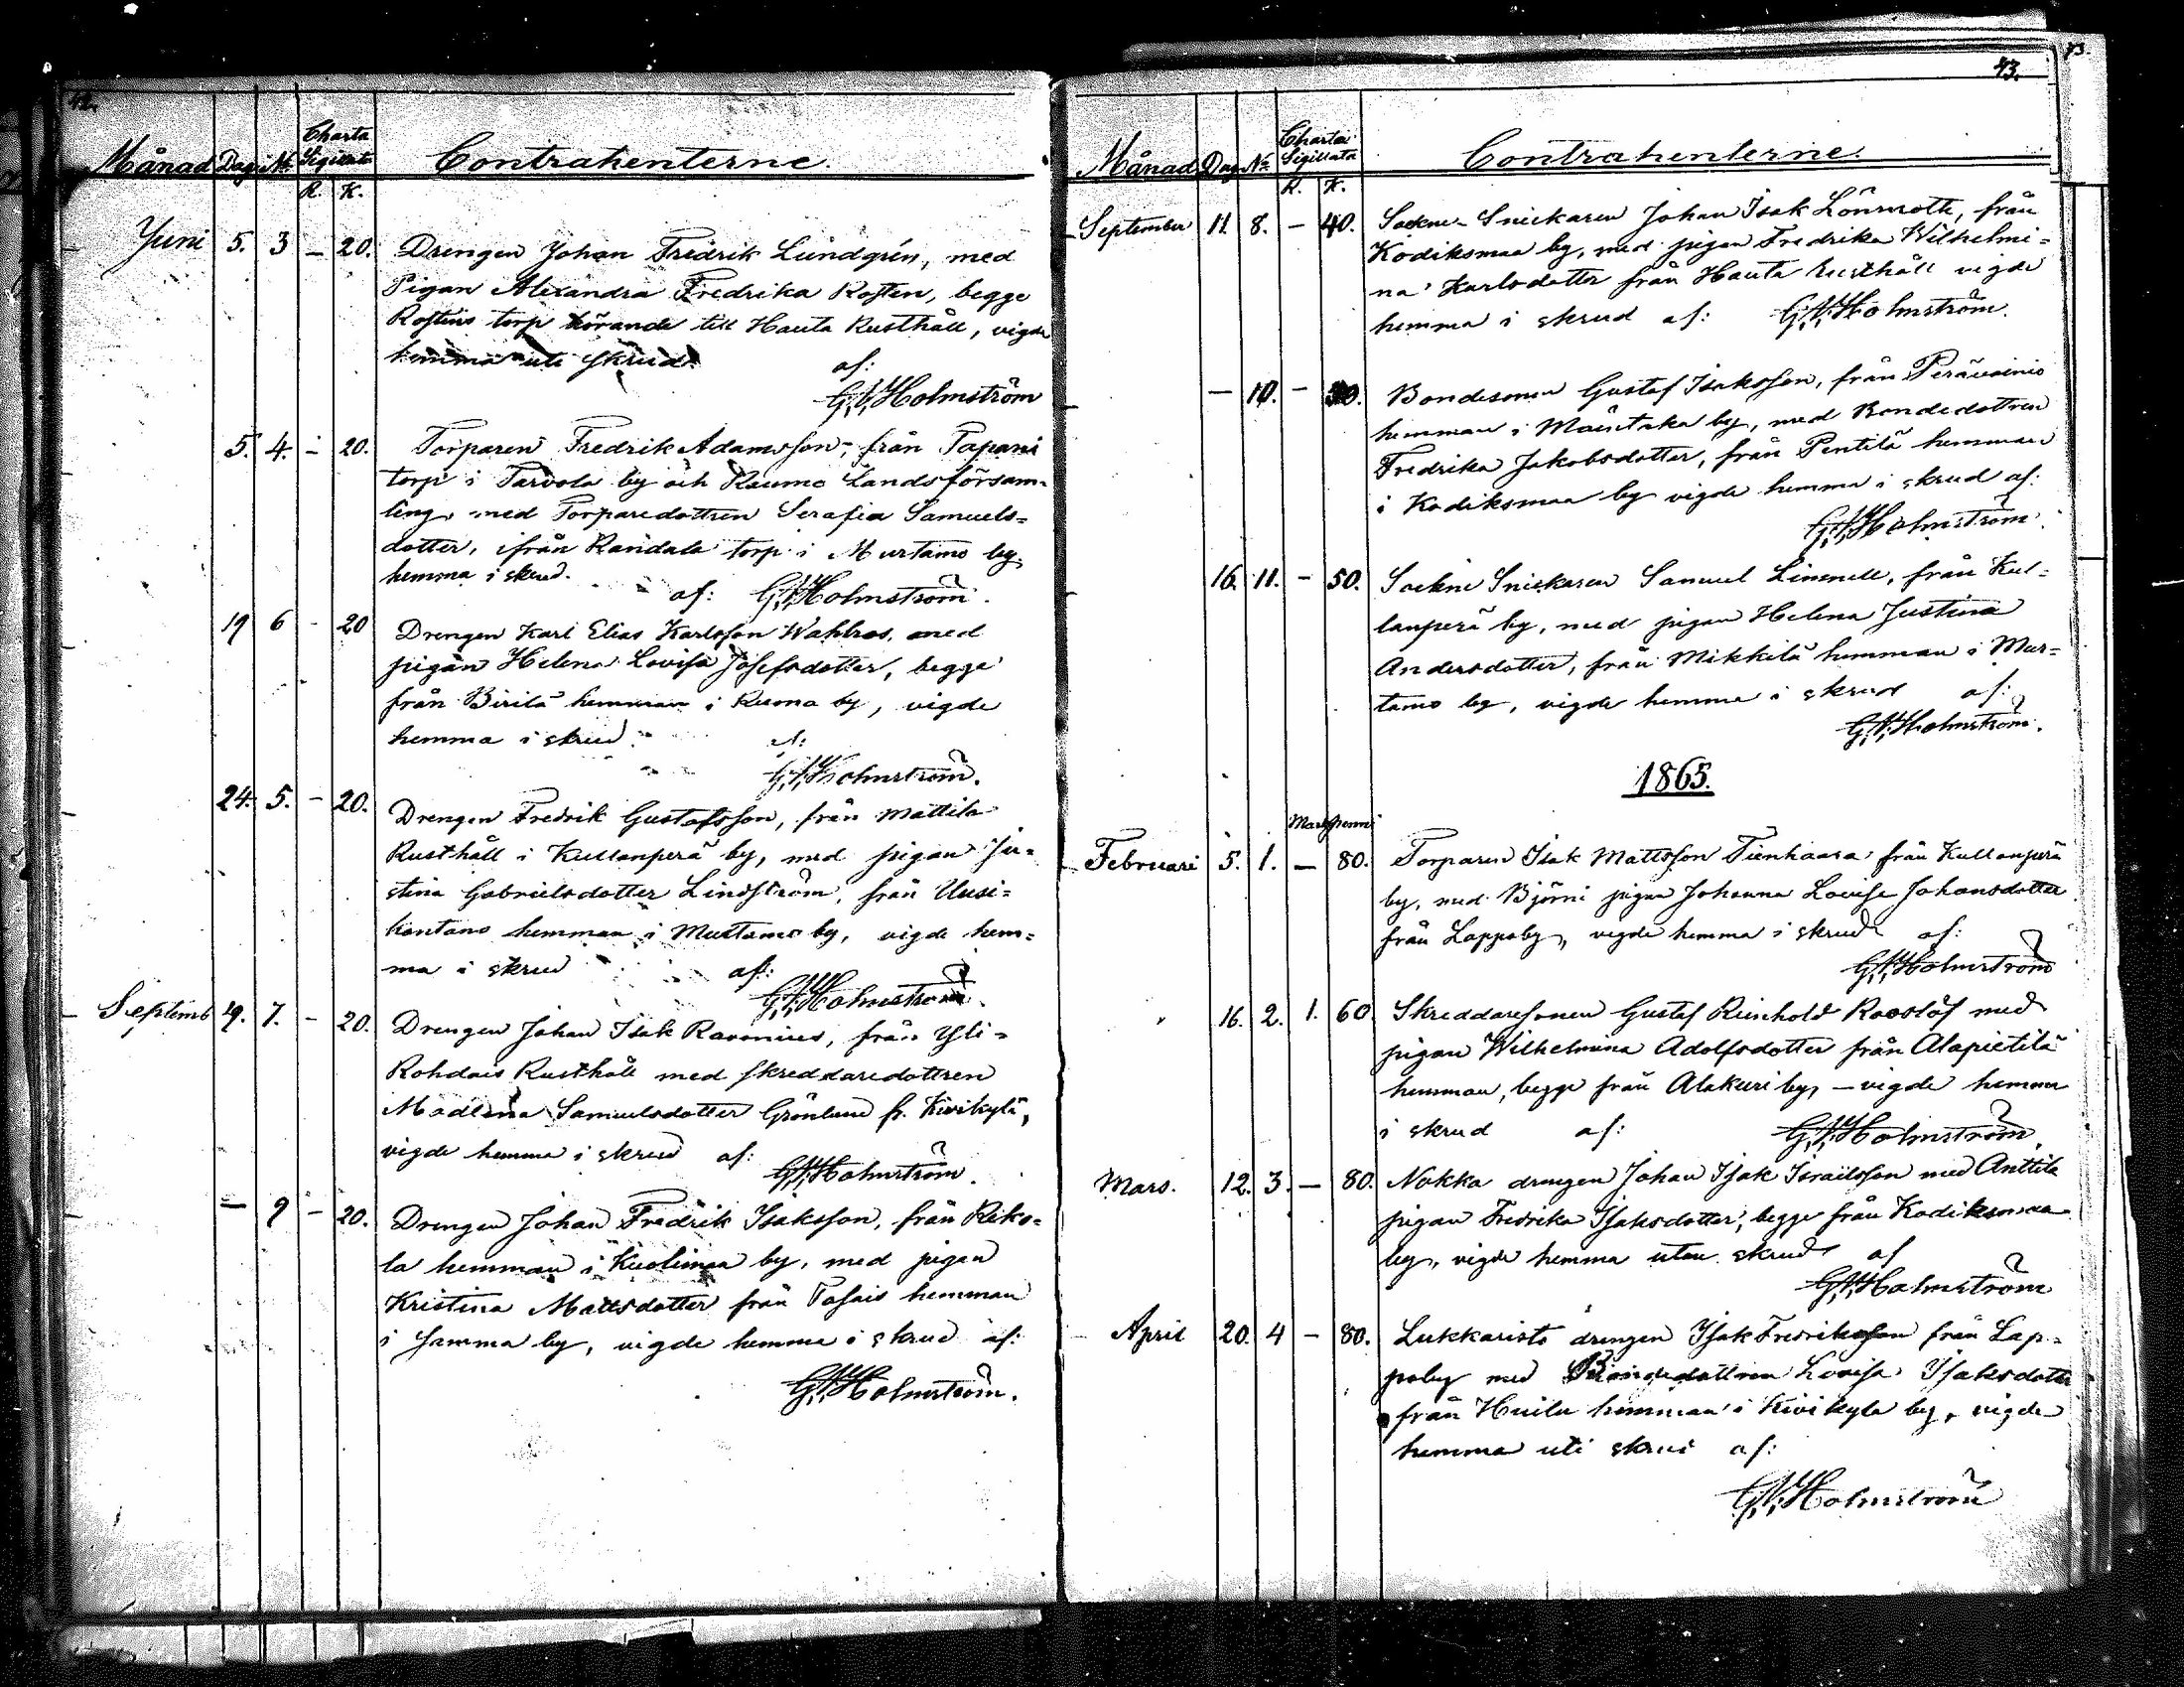 42.
Månad Dag No. Charta Sigillata Contrahenterne.
R. K.
Juni 5. 3 – 20. Drengen Johan Fredrik Lundgrén, med
Pigan Alexandra Fredrika Rosten, begge
Rostens torp hörande till Hauta Rusthåll, vigde
hemma uti skrud. af:
G.N.Holmström
5. 4. – 20. Torparen Fredrik Adamsson, från Tapani
torp i Tarvola by och Raumo Landsförsam=
ling, med Torparedottren Serafia Samuels=
dotter, ifrån Randala torp i Murtamo by
hemma i skrud.
af: G.N.Holmström.
19 6 – 20 Drengen Karl Elias Karlsson Wahlros, med
pigan Helena Lovisa Josefsdotter, begge
från Birilä hemman i Ruona by, vigde
hemma i skrud. af:
G.N.Holmström.
24. 5. – 20. Drengen Fredrik Gustafsson, från Mattila
Rusthåll i Kullanperä by, med pigan Ju=
stina Gabrielsdotter Lindström, från Uusi=
kantano hemman i Murtamo by, vigde hem=
ma i skrud af:
G.N.Holmström.
Septemb 19. 7. – 20. Drengen Johan Isak Ravonius, från Yli=
Rohdais Rusthåll med skreddaredottren
Madlena Samuelsdotter Grönlund fr. Kivikylä,
vigde hemma i skrud af:
G.N.Holmström.
— 9 – 20. Drengen Johan Fredrik Isaksson, från Reko=
la hemman i Kuolimaa by, med pigan
Kristina Mattsdotter från Pasais hemman
i samma by, vigde hemma i skrud af:
G.N.Holmström.
43.
43.
Månad Dag No. Charta Sigillata Contrahenterne.
R. K.
September 11. 8. – 40. Sockne-Snickaren Johan Isak Lönnroth, från
Kodiksmaa by, med pigan Fredrika Wilhelmi=
na Karlsdotter från Hauta Rusthåll vigde
hemma i skrud af: G.N.Holmström.
— 10. – Bondesonen Gustaf Isaksson, från Perävainio
hemman i by, med Bondedottren
Fredrika Jakobsdotter, från Pentilä hemman
i Kodiksmaa by vigde hemma i skrud af:
G.N.Holmström.
16. 11. – 50. Sockne Snickaren Samuel Linnell, från Kul=
lanperä by, med pigan Helena Justina
Andersdotter, från Mikkilä hemman i Mur=
tamo by, vigde hemma i skrud af:
G.N.Holmström.
1865.
Mark penni
Februari 5. 1. – 80. Torparen Isak Mattsson Tienhaara från Kullanperä
by, med Björni pigan Johanna Lovisa Johansdotter
från Lappoby, vigde hemma i skrud af:
G.N.Holmström
16. 2. 1. 60. Skreddaresonen Gustaf Reinhold Rooslöf med
pigan Wilhelmina Adolfsdotter från Alapietilä
hemman, begge från Alakuri by, – vigde hemma
i skrud af: G.N.Holmström.
Mars. 12. 3. – 80. Nokka drengen Johan Isak Israelsson med Anttila
pigan Fredrika Isaksdotter, begge från Kodiksmaa
by, vigde hemma utan skrud af
G.N.Holmström
April 20. 4 – 80. Lukkaristo drengen Isak Fredriksson från Lap=
poby med Bondedottren Lovisa Isaksdotter
från Huilu hemman i Kivikylä by, vigde
hemma uti skrud af:
G.N.Holmström